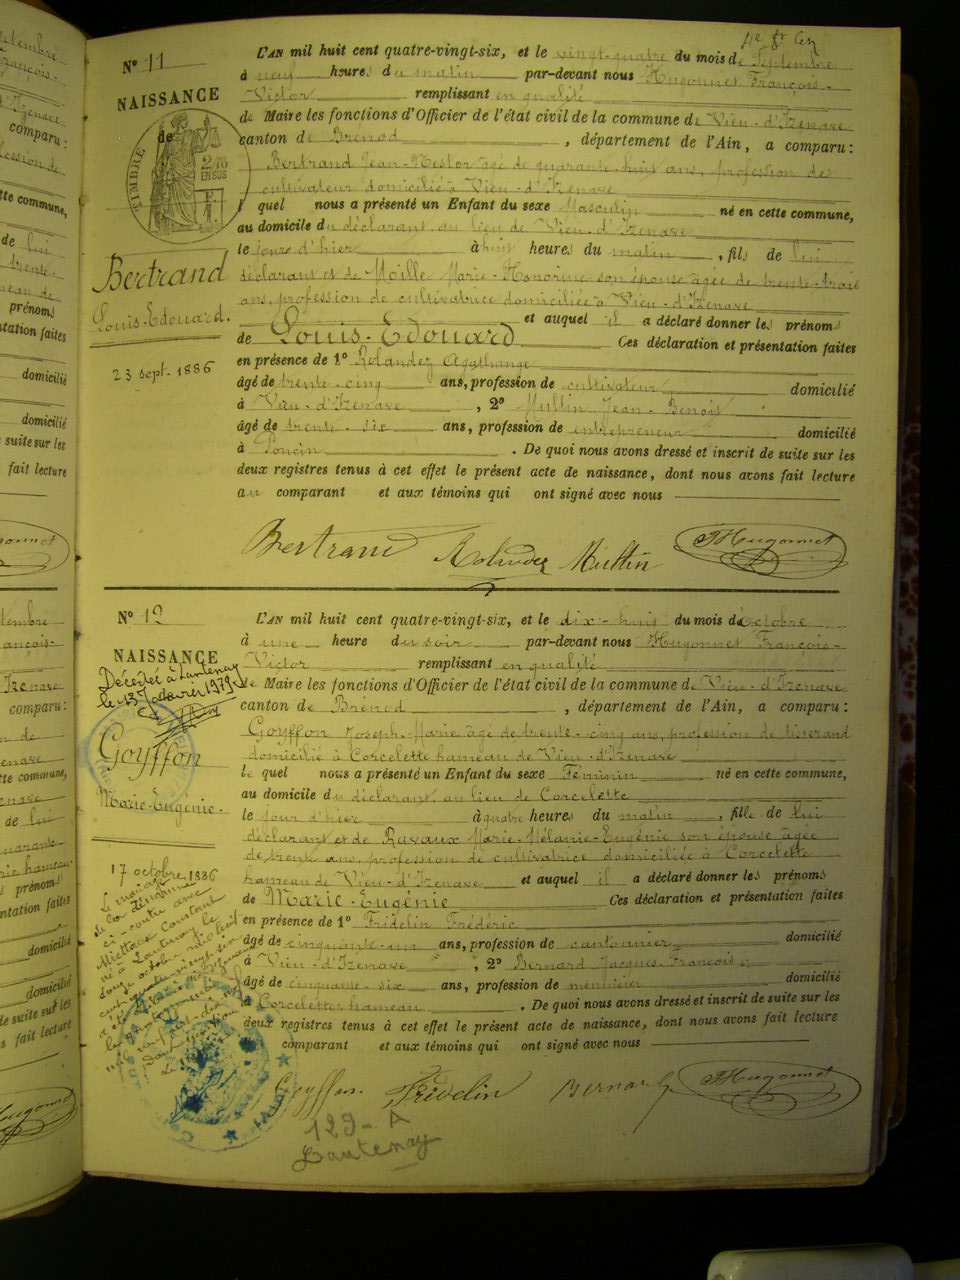 4e fr Ex
N° 11
NAISSANCE
de
TIMBRE
EN SUS
Bertrand
Louis-Edouard.
23 sept. 1886
L'AN mil huit cent quatre-vingt-six, et le vingt-quatre du mois de Septembre
à neuf heures du matin par-devant nous Hugonnet François-
Victor remplissant en qualité
de Maire les fonctions d'Officier de l'état civil de la commune de Vieu-d'Izenave
canton de Brenod, département de l'Ain, a comparu :
Bertrand Jean-Nestor âgé de quarante-huit ans, profession de
cultivateur domicilié à Vieu-d'Izenave
lequel nous a présenté un Enfant du sexe Masculin né en cette commune,
au domicile du déclarant au lieu de Vieu-d'Izenave
le jour d'hier à huit heures du matin, fils de lui
déclarant et de Moille Marie-Honorine son épouse âgée de trente-trois
ans, profession de cultivatrice domiciliée à Vieu-d'Izenave
et auquel il a déclaré donner les prénoms
de Louis-Edouard Ces déclaration et présentation faites
en présence de 1° Rolandez Agathange
âgé de trente-cinq ans, profession de cultivateur domicilié
à Vieu-d'Izenave, 2° Jean-Benoit
âgé de trente-six ans, profession de entrepreneur domicilié
à Poncin. De quoi nous avons dressé et inscrit de suite sur les
deux registres tenus à cet effet le présent acte de naissance, dont nous avons fait lecture
au comparant et aux témoins qui ont signé avec nous
Bertrand Rolandez Hugonnet
N° 12
NAISSANCE
Décédée à Lantenay
le 13 1979
Goyffon
Marie-Eugénie.
17 octobre 1886
L'AN mil huit cent quatre-vingt-six, et le dix-huit du mois de octobre
à une heure du soir par-devant nous Hugonnet François-
Victor remplissant en qualité
de Maire les fonctions d'Officier de l'état civil de la commune de Vieu-d'Izenave
canton de Brénod, département de l'Ain, a comparu :
Goyffon Joseph-Marie âgé de trente-cinq ans, profession de tisserand
domicilié à Corcelette hameau de Vieu-d'Izenave
lequel nous a présenté un Enfant du sexe Féminin né en cette commune,
au domicile du déclarant au lieu de Corcelette
le jour d'hier à quatre heures du matin, fille de lui
déclarant et de Ravaux Marie-Mélanie-Eugénie son épouse âgée
de trente ans, profession de cultivatrice domiciliée à Corcelette
hameau de Vieu-d'Izenave et auquel il a déclaré donner les prénoms
de Marie-Eugénie Ces déclaration et présentation faites
en présence de 1° Fridelin Frédéric
âgé de cinquante-un ans, profession de cantonnier domicilié
à Vieu-d'Izenave, 2° Bernard Jacques-François
âgé de cinquante-six ans, profession de menuisier domicilié
à Corcelette hameau. De quoi nous avons dressé et inscrit de suite sur les
deux registres tenus à cet effet le présent acte de naissance, dont nous avons fait lecture
comparant et aux témoins qui ont signé avec nous
Goyffon Fridelin Bernard Hugonnet
129-A
Lantenay